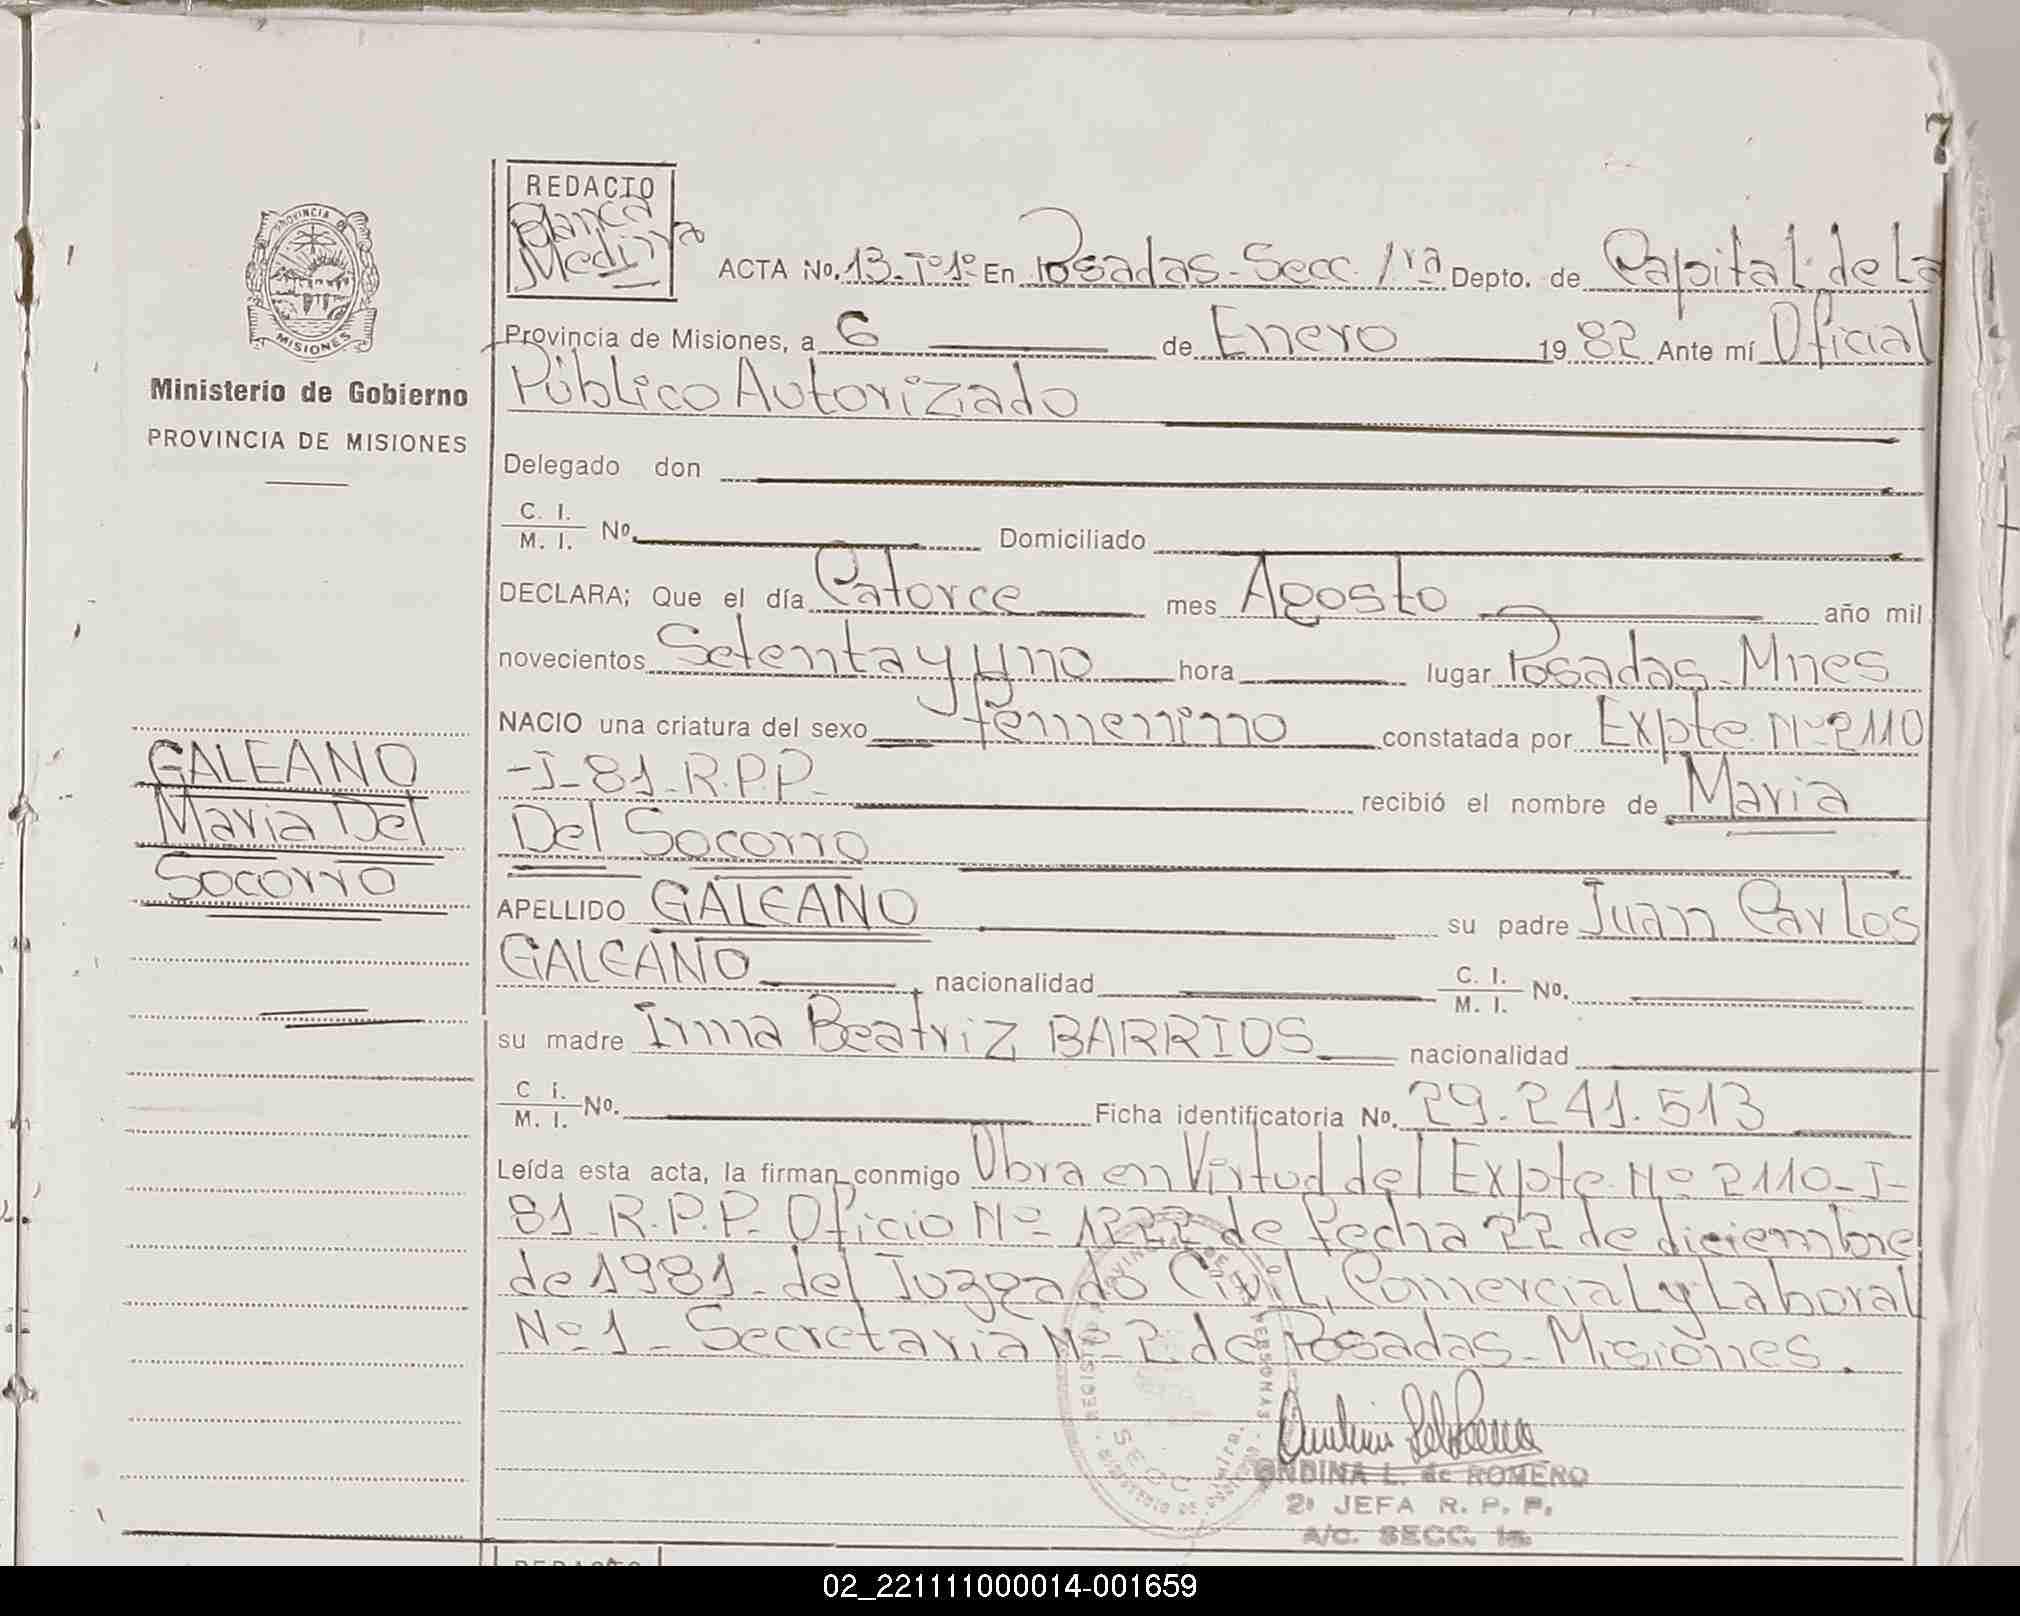 7
REDACTO
Blanca
Medina
PROVINCIA DE
MISIONES
Ministerio de Gobierno
PROVINCIA DE MISIONES
ACTA No. 13-Tº1º En Posadas-Secc. 1ra Depto. de Capital de La
Provincia de Misiones, a 6 de Enero 19 82 Ante mí Oficial
Público Autorizado
Delegado don
C. I.
M. I. No. Domiciliado
DECLARA; Que el día Catorce mes Agosto año mil
novecientos Setenta y Uno hora lugar Posadas-Mnes
NACIO una criatura del sexo femenino constatada por Expte. Nº 2110
-I-81-R.P.P.- recibió el nombre de Maria
Del Socorro
APELLIDO GALEANO su padre Juan Carlos
GALEANO nacionalidad C. I.
M. I. No.
su madre Irma Beatriz BARRIOS nacionalidad
C. I.
M. I. No. Ficha identificatoria No. 29.241.513
Leída esta acta, la firman conmigo Obra en Virtud del Expte. Nº 2110-I-
81-R.P.P.- Oficio Nº 1222 de fecha 22 de diciembre
de 1981-del Juzgado Civil, Comercial y Laboral
Nº 1- Secretaria Nº 2 de Posadas-Misiones.
GALEANO
Maria Del
Socorro
ONDINA L. de ROMERO
2ª JEFA R. P. P.
A/C. SECC. 1a.
REDACTO
02_221111000014-001659